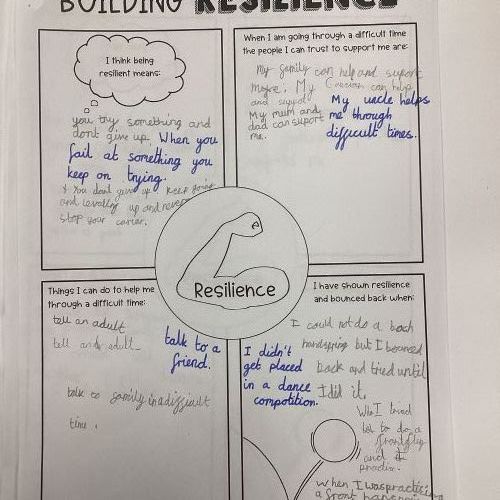 BUILDING RESILIENCE
I think being
resilient means:
you try something and
dont give up. When you
fail at something you
keep on trying.
You dont give up keep going
and levelling up and never
stop your
When I am going through a difficult time
the people I can trust to support me are:
My family can help and suport
more. My can help
and support My uncle helps
My mum and me through
dad can support difficult times.
me.
Resilience
Things I can do to help me
through a difficult time:
tell an adult
tell adult
talk to a
friend.
talk to family in a difficult
time.
I have shown resilience
and bounced back when:
I could not do a bach
handspring but I bounced
back and tried until
I did it.
I didn't
get placed
in a dance
compotition.
When I tried
to do a
frontflip
and
When I was practis
a front